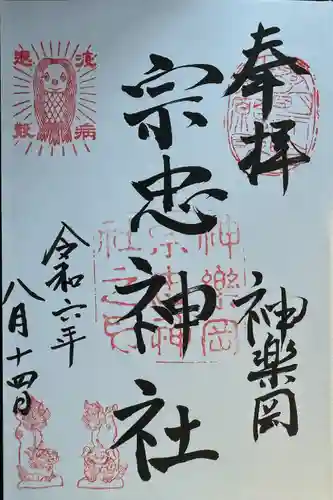 奉拝
神楽岡
宗忠神社
神楽岡
宗忠神
社之印
令和六年
八月十四日